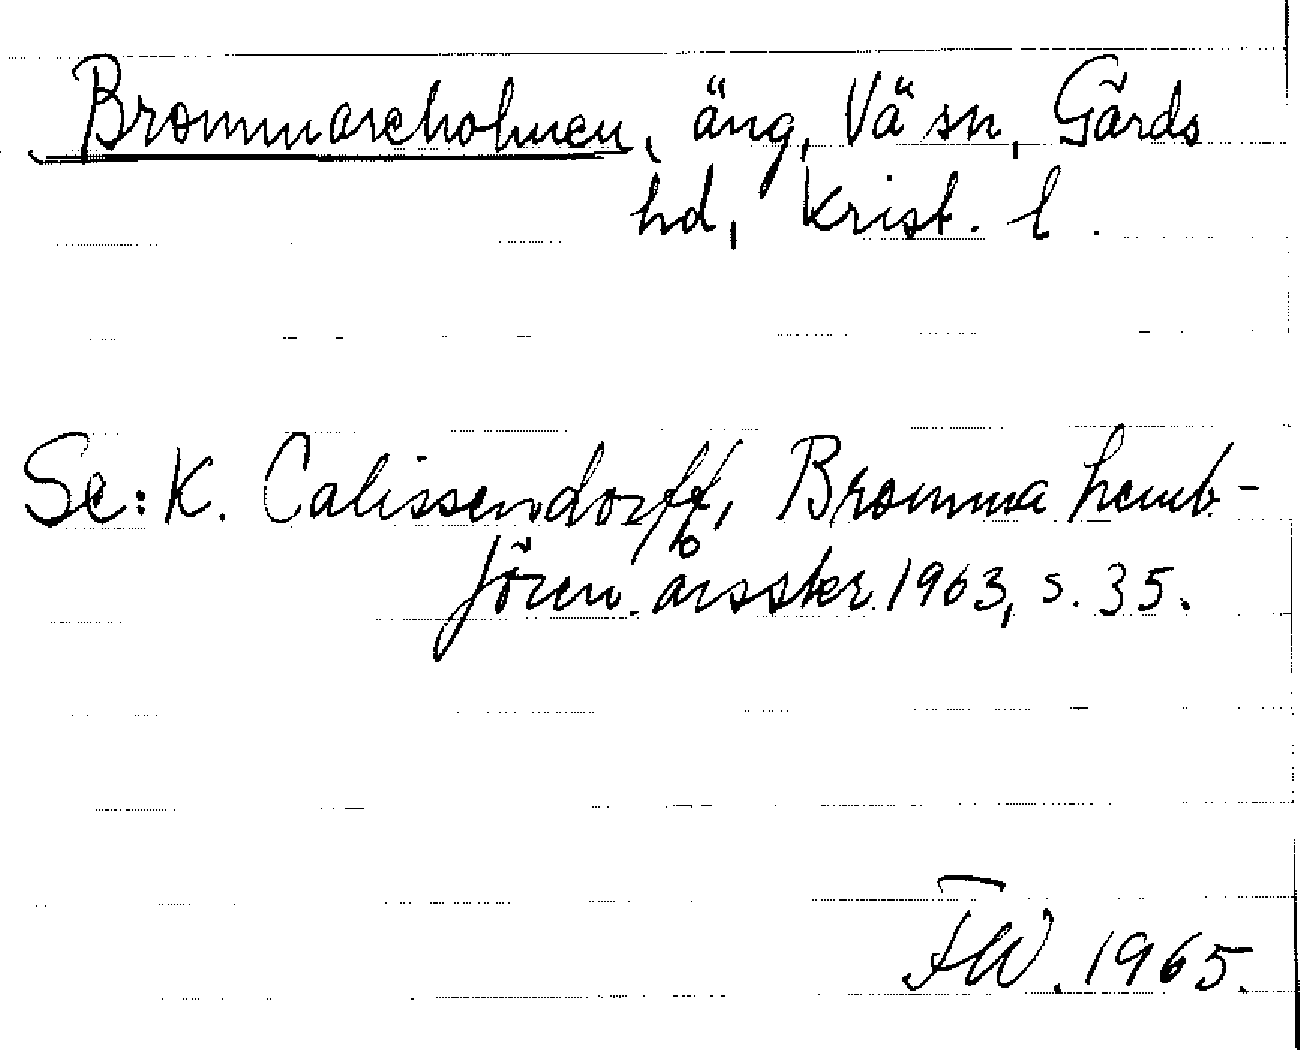 Brommareholmen, äng, Vä sn, Gärds
hd, Krist. l.
Se: K. Calissendorff, Bromma hemb-
fören. årsskr. 1963, s. 35.
FW. 1965.